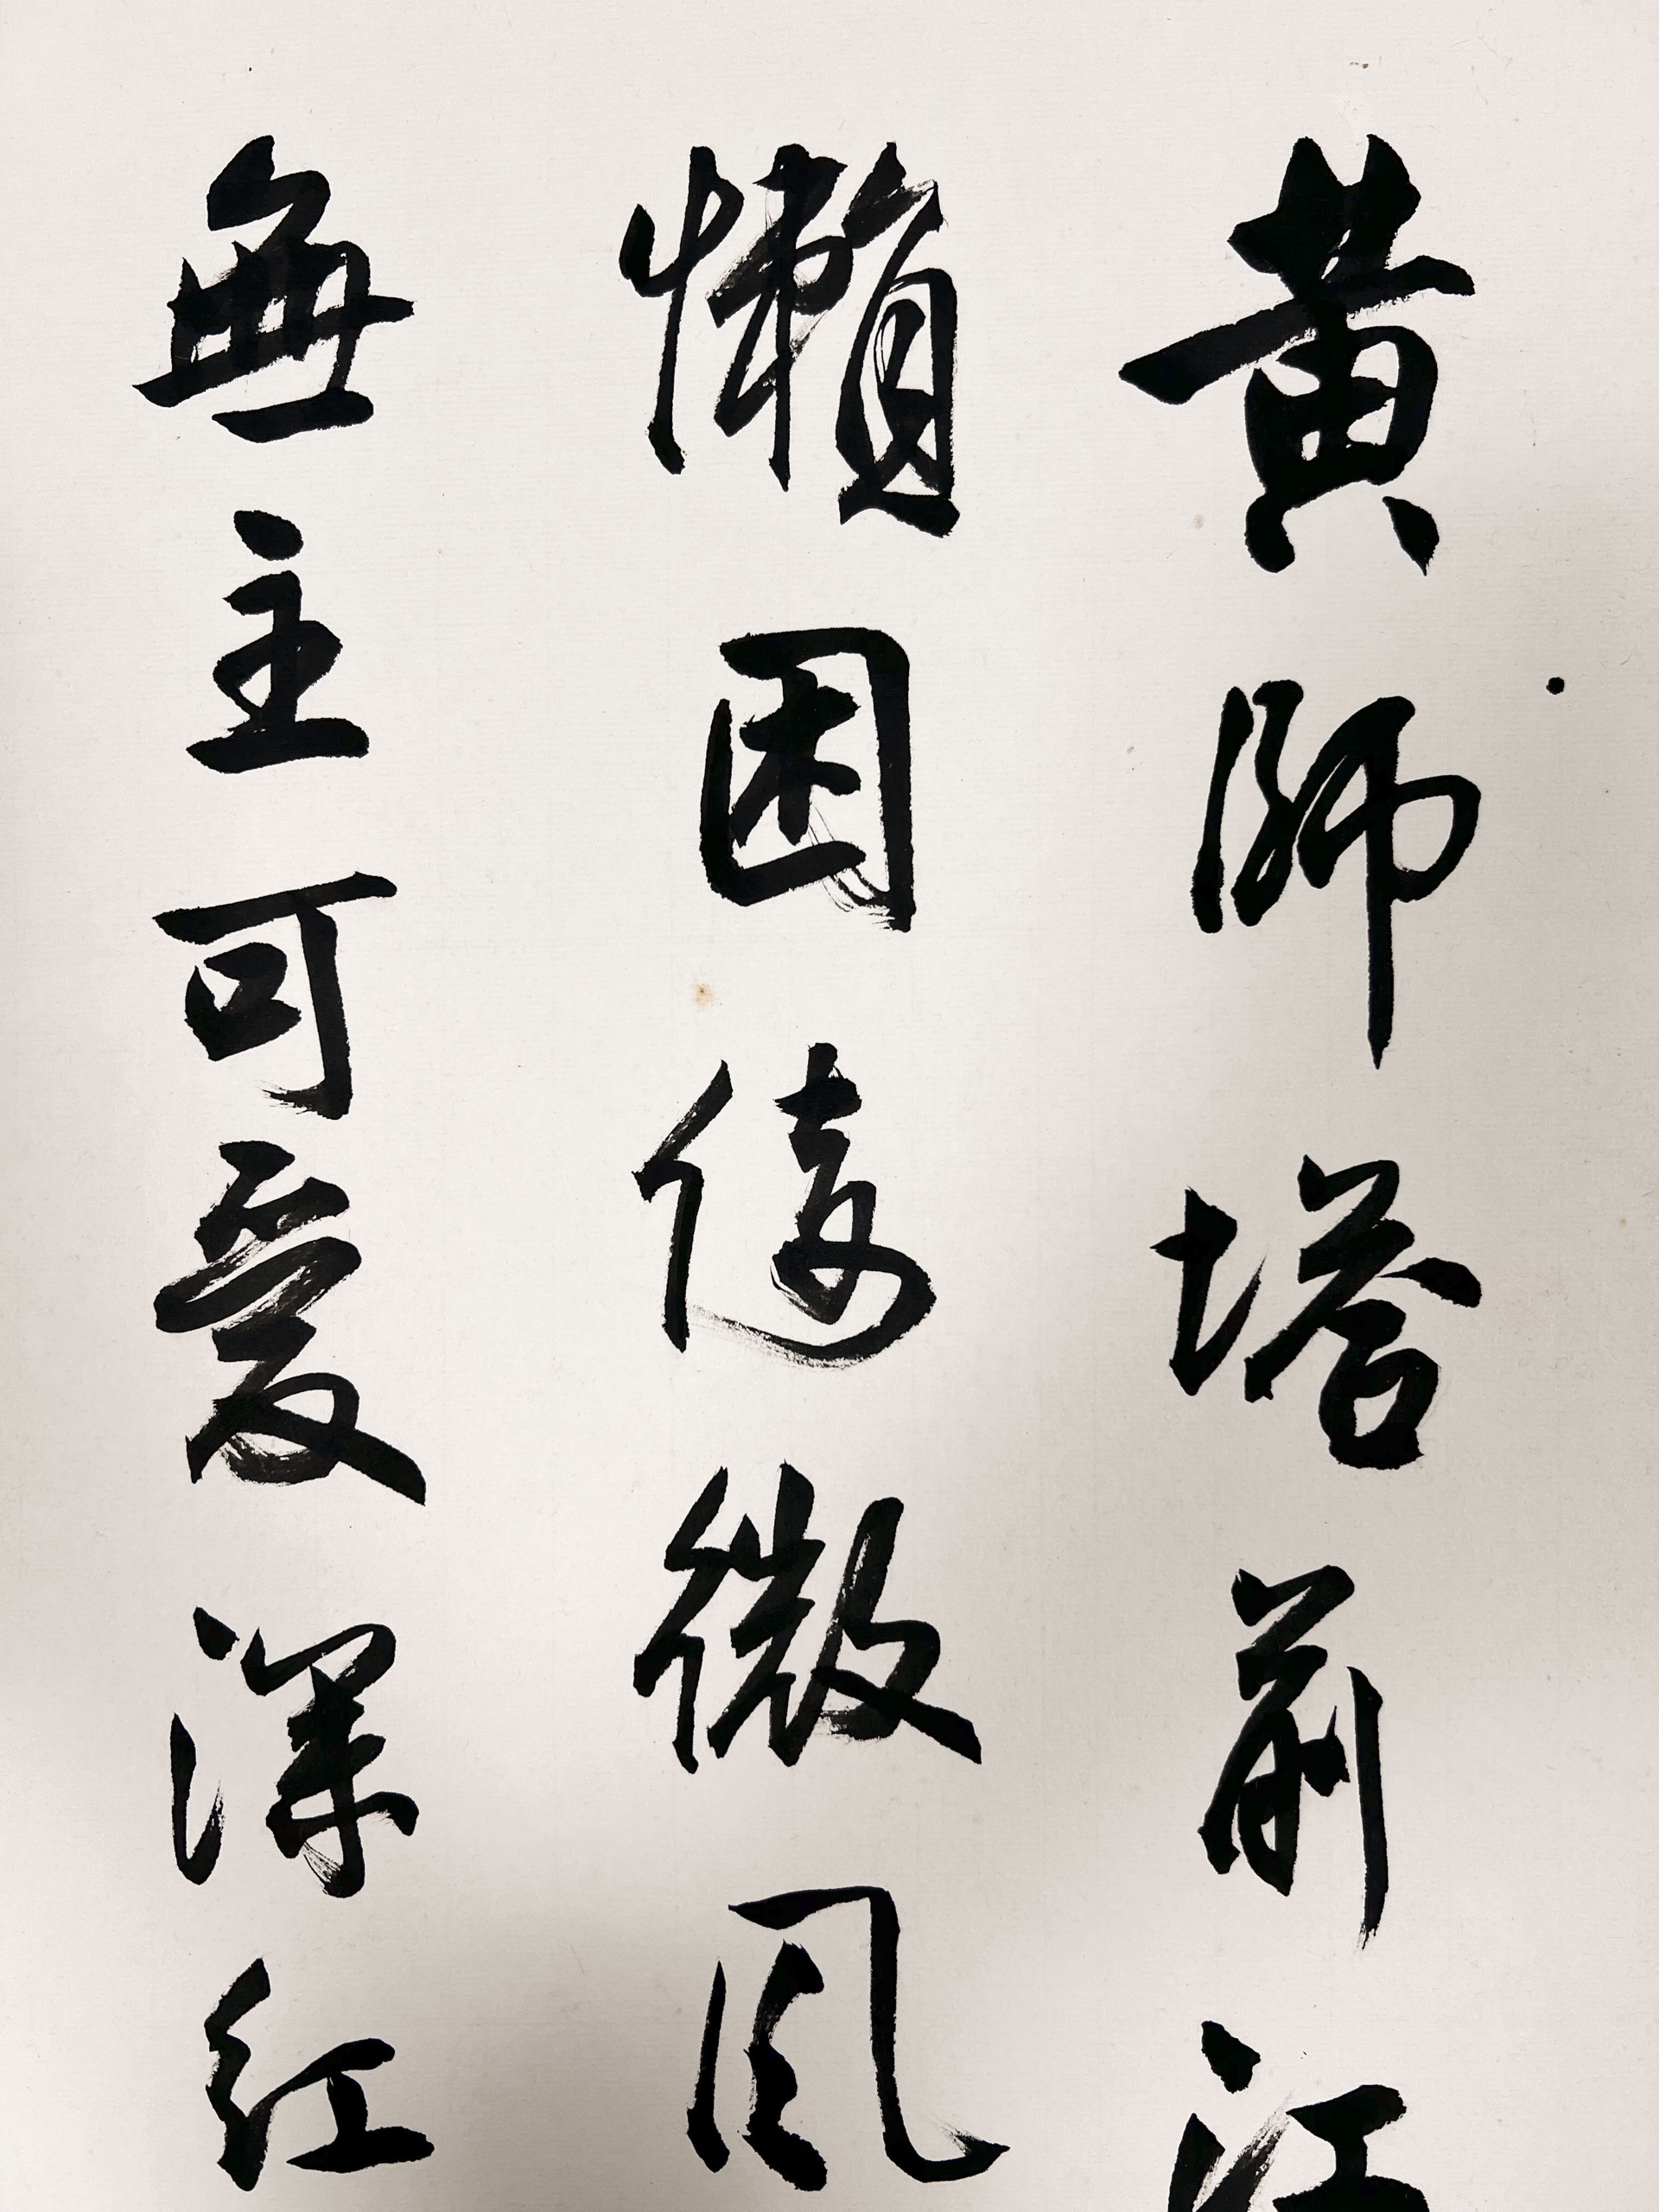 黄師塔前江
懶困倚微風
無主可愛深紅